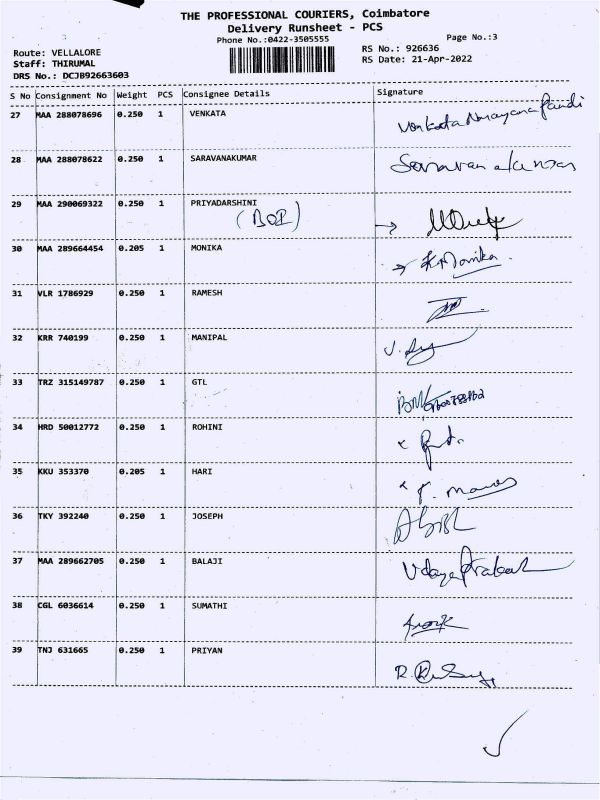 THE PROFESSIONAL COURIERS, Coimbatore
Delivery Runsheet - PCS
Phone No.:0422-3505555
Page No.:3
Route: VELLALORE
RS No.: 926636
Staff: THIRUMAL
RS Date: 21-Apr-2022
DRS No.: DCJB92663603
S No Consignment No Weight PCS Consignee Details Signature
27 MAA 288078696 0.250 1 VENKATA Venkata Narayana Pandi
28 MAA 288078622 0.250 1 SARAVANAKUMAR
29 MAA 290069322 0.250 1 PRIYADARSHINI
(BOI)
30 MAA 289664454 0.205 1 MONIKA K. Monika
31 VLR 1786929 0.250 1 RAMESH
32 KRR 740199 0.250 1 MANIPAL
33 TRZ 315149787 0.250 1 GTL
34 HRD 50012772 0.250 1 ROHINI
35 KKU 353370 0.205 1 HARI
36 TKY 392240 0.250 1 JOSEPH
37 MAA 289662705 0.250 1 BALAJI Udaya Prakash
38 CGL 6036614 0.250 1 SUMATHI
39 TNJ 631665 0.250 1 PRIYAN